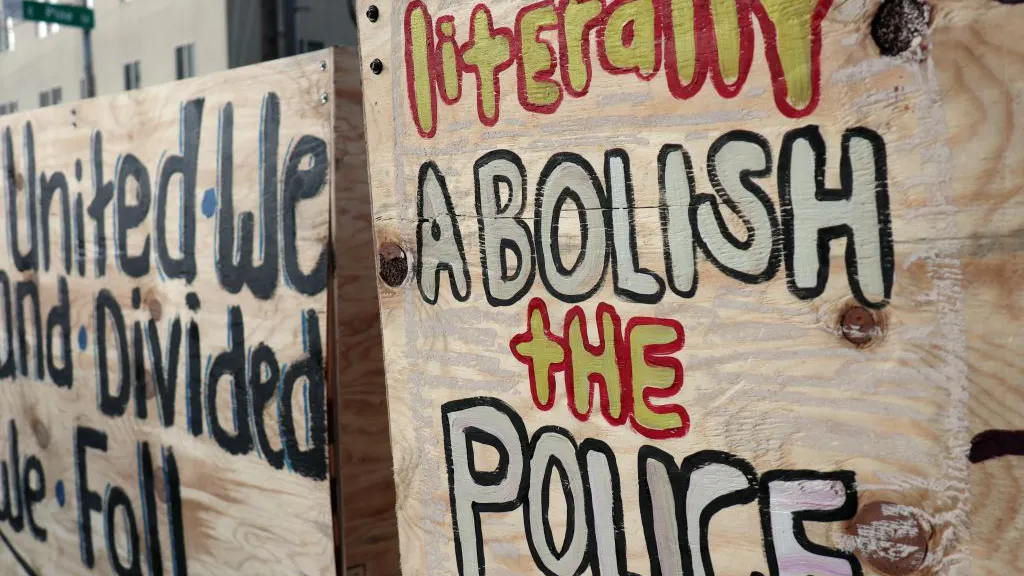 United · We
and · Divided
We · Fall
literally
ABOLISH
tHE
POLICE